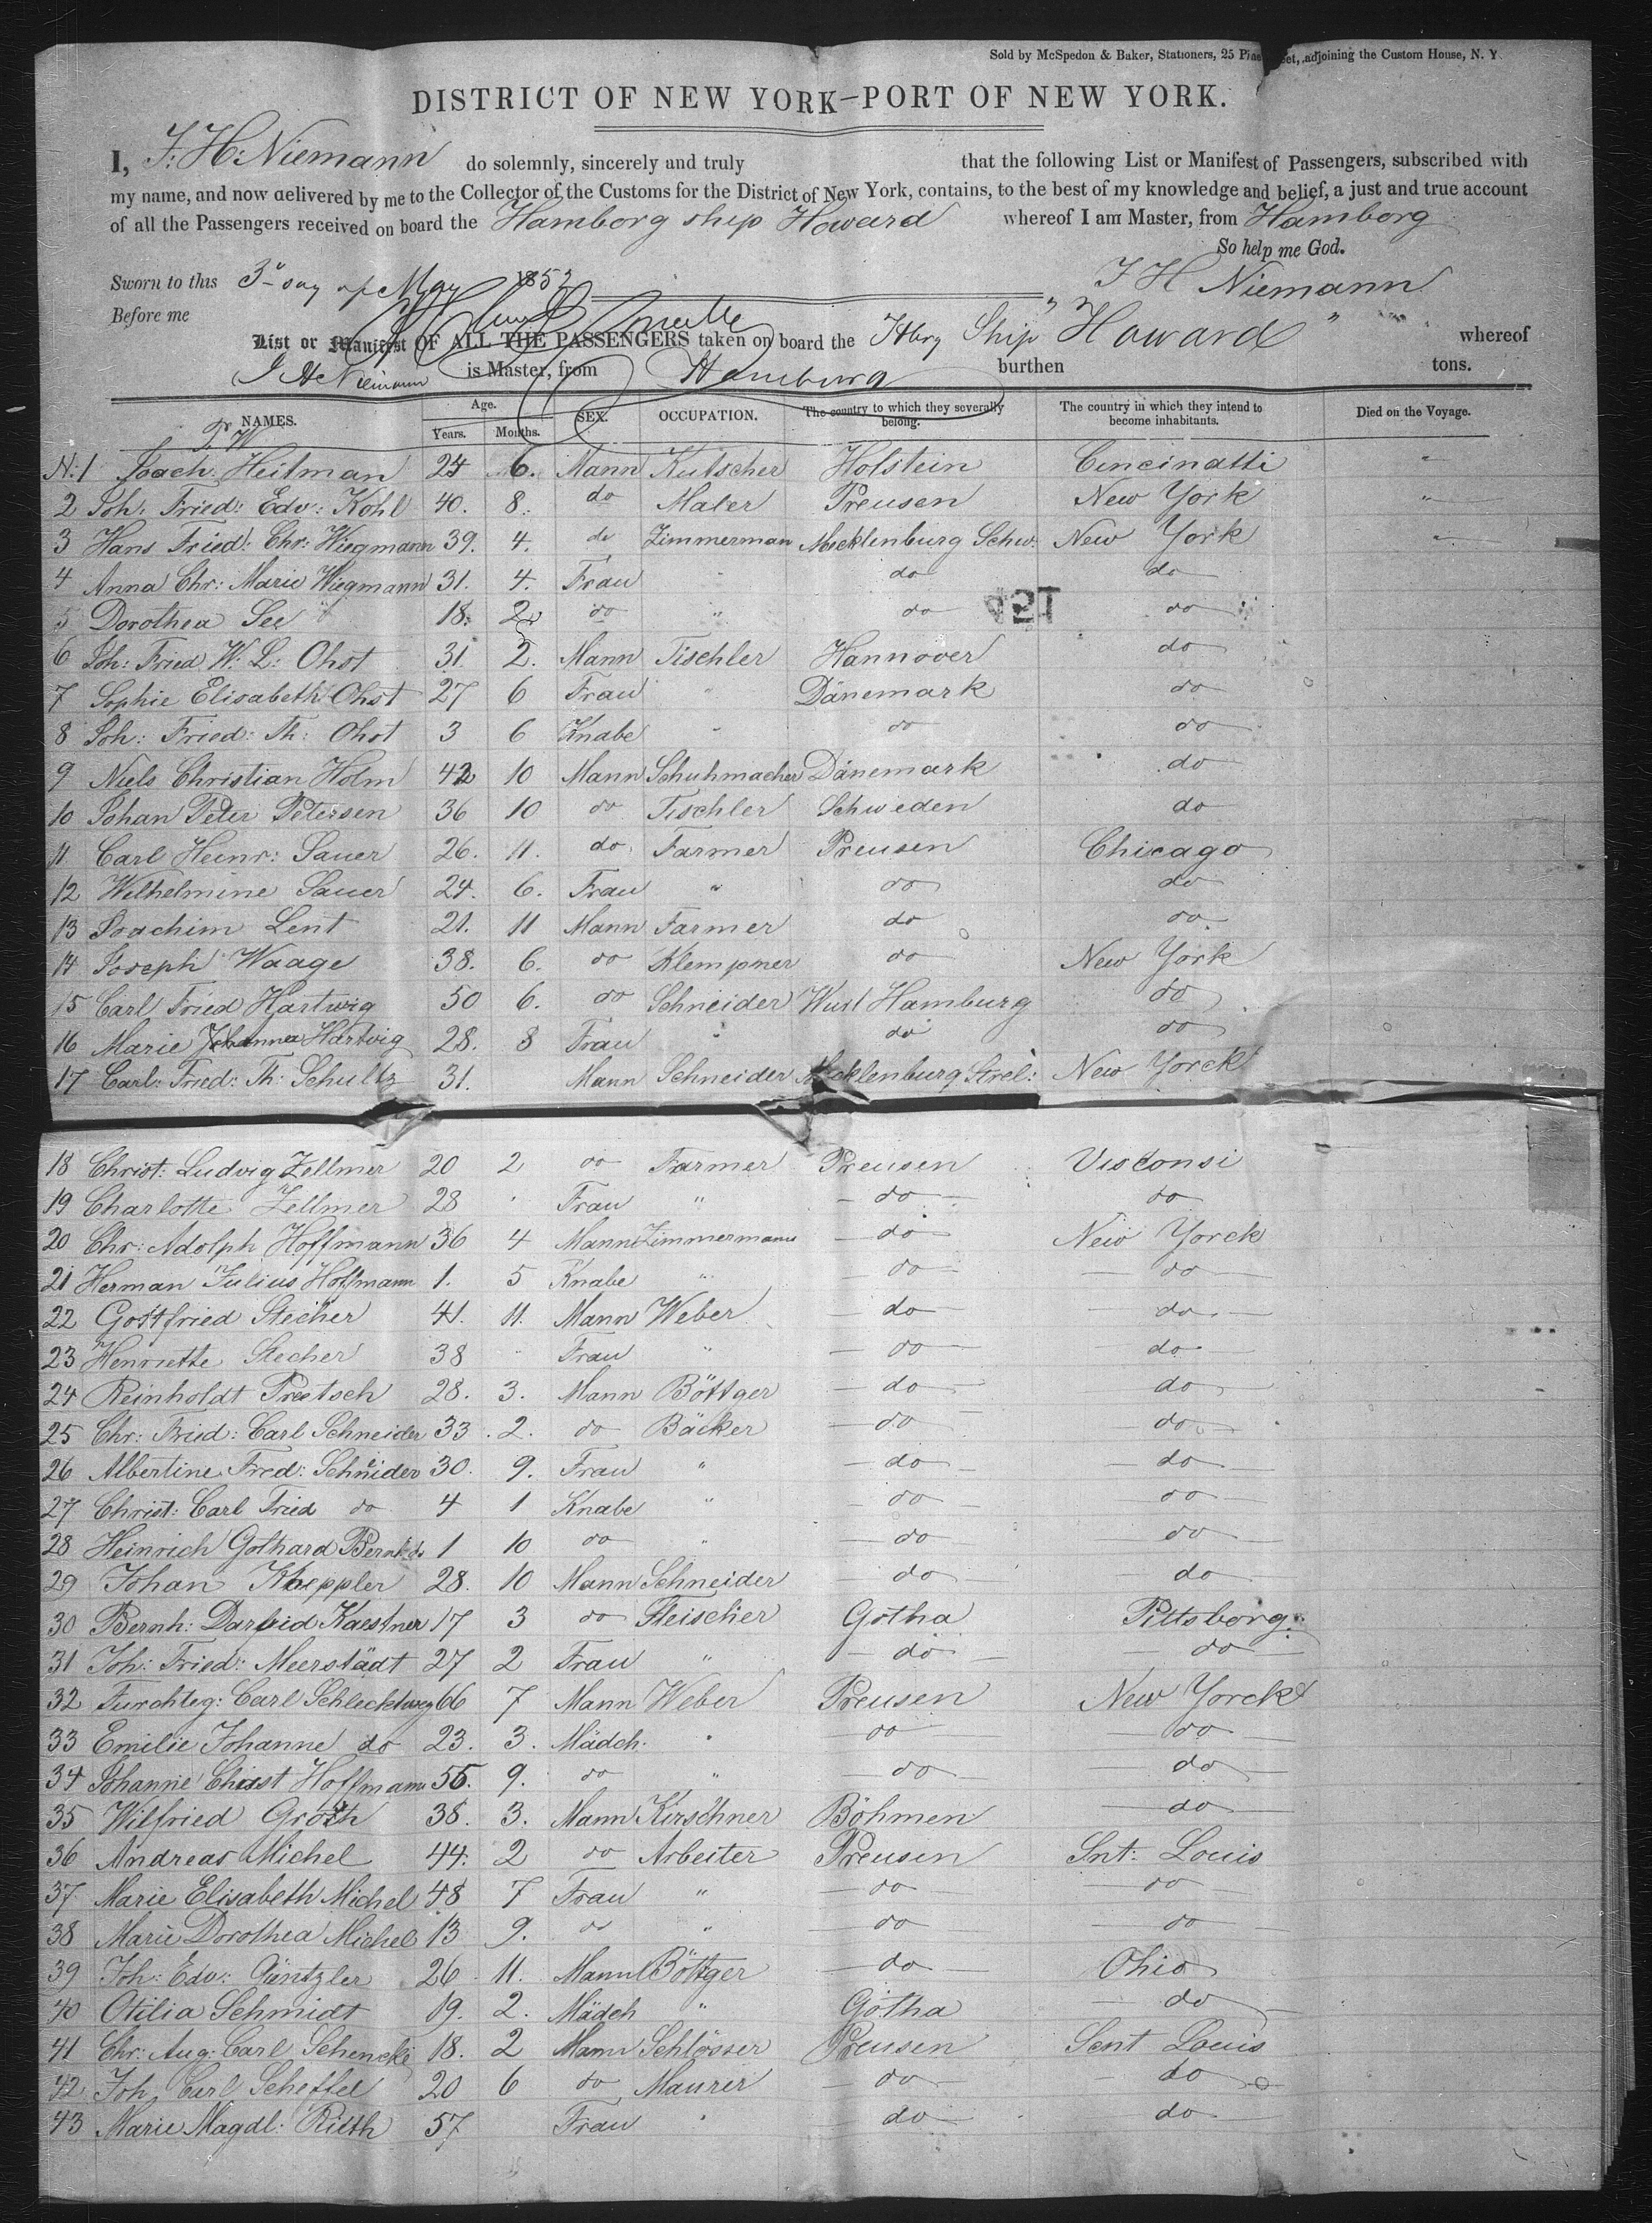 Sold by McSpedon & Baker, Stationers, 25 Pine Street, adjoining the Custom House, N. Y.
DISTRICT OF NEW YORK—PORT OF NEW YORK.
I, J: H: Niemann do solemnly, sincerely and truly that the following List or Manifest of Passengers, subscribed with
my name, and now delivered by me to the Collector of the Customs for the District of New York, contains, to the best of my knowledge and belief, a just and true account
of all the Passengers received on board the Hamborg ship Howard whereof I am Master, from Hamborg
So help me God.
Sworn to this 3d day of May 1853 J H Niemann
Before me
List or Manifest OF ALL THE PASSENGERS taken on board the Hbrg Ship "Howard" whereof
J H Niemann is Master, from Hamburg burthen tons.
NAMES. Age. Years. Months. SEX. OCCUPATION. The country to which they severally belong. The country in which they intend to become inhabitants. Died on the Voyage.
N: 1 Joach: Heitman 24 6. Mann Kutscher Holstein Cincinatti "
2 Joh: Fried: Edv: Kohl 40. 8. do Maler Preusen New York "
3 Hans Fried: Chr: Wiegmann 39. 4. do Zimmerman Mecklenburg Schw. New York "
4 Anna Chr: Marie Wiegmann 31. 4. Frau " do do
5 Dorothea See 18. 2 do " do do
6 Joh: Fried W: L: Ohst 31. 2. Mann Tischler Hannover do
7 Sophie Elisabeth Ohst 27 6 Frau " Dänemark do
8 Joh: Fried: Th: Ohst 3 6 Knabe " do do
9 Niels Christian Holm 42 10 Mann Schuhmacher Dänemark do
10 Johan Peter Petersen 36 10 do Tischler Schweden do
11 Carl Heinr: Sauer 26. 11. do Farmer Preusen Chicago
12 Wilhelmine Sauer 24. 6. Frau " do do
13 Joachim Lent 21. 11 Mann Farmer do do
14 Joseph Waage 38. 6. do Klempner do New York
15 Carl Fried Hartwig 50 6. do Schneider Hamburg do
16 Marie Johanna Hartvig 28. 8 Frau " do do
17 Carl: Fried: Th: Schultz 31. Mann Schneider Mecklenburg Strel: New Yorck
18 Christ: Ludvig Zellmer 20 2 do Farmer Preusen Visconsi
19 Charlotte Zellmer 28 " Frau " do do
20 Chr: Adolph Hoffmann 36 4 Mann Zimmermann do New Yorck
21 Herman Julius Hoffmann 1. 5 Knabe " do do
22 Gottfried Stecher 41. 11. Mann Weber do do
23 Henriette Stecher 38 " Frau " do do
24 Reinholdt Preetsch 28. 3. Mann Böttger do do
25 Chr: Fried: Carl Schneider 33. 2. do Bäcker do do
26 Albertine Fred: Schneider 30. 9. Frau " do do
27 Christ: Carl Fried do 4 1 Knabe " do do
28 Heinrich Gothard Bernh: do 1 10 do " do do
29 Johan Kheppler 28. 10 Mann Schneider do do
30 Bernh: Kaestner 17 3 do Fleischer Gotha Pittsborg
31 Joh: Fried: Meerstädt 27 2 Frau " do do
32 Furchteg: Carl Schlechtweg 66 7 Mann Weber Preusen New Yorck
33 Emilie Johanne do 23. 3. Mädch. " do do
34 Johanne Christ Hoffmann 55. 9. do " do do
35 Wilfried Groth 38. 3. Mann Kirschner Böhmen do
36 Andreas Michel 44. 2 do Arbeiter Preusen Snt: Louis
37 Marie Elisabeth Michel 48 7 Frau " do do
38 Marie Dorothea Michel 13 9. do " do do
39 Joh: Edv: Güntzler 26 11. Mann Böttger do Ohio
40 Otilia Schmidt 19. 2. Mädch " Gotha do
41 Chr: Aug: Carl Schencke 18. 2 Mann Schlosser Preusen Sent Louis
42 Joh. Carl Scheffel 20 6 do Maurer do do
43 Marie Magdl: Rieth 57 Frau " do do